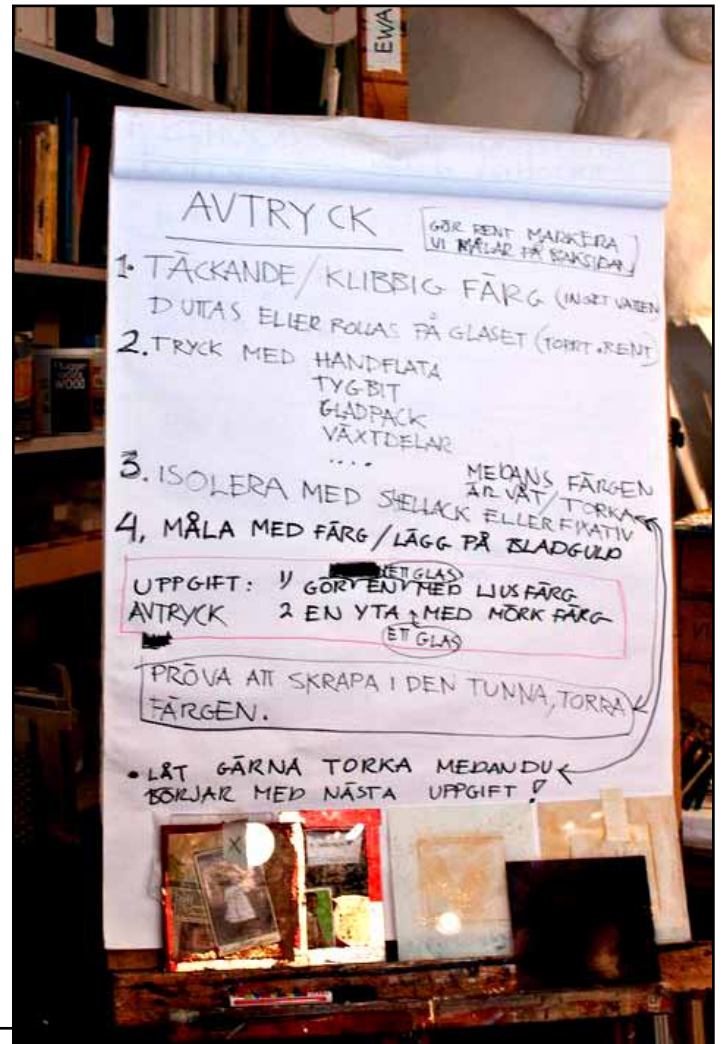 EWA
AVTRYCK
GÖR RENT MARKERA
VI MÅLAR PÅ BAKSIDAN
1. TÄCKANDE/KLIBBIG FÄRG (INGET VATTEN
DUTTAS ELLER ROLLAS PÅ GLASET (TORRT.RENT)
2. TRYCK MED HANDFLATA
TYGBIT
GLADPACK
VÄXTDELAR
....
3. ISOLERA MED SHELLACK ELLER FIXATIV
MEDANS FÄRGEN
ÄR VÅT/TORKA
4, MÅLA MED FÄRG/LÄGG PÅ BLADGULD
ETT GLAS
UPPGIFT: 1) GÖR EN MED LJUS FÄRG
AVTRYCK 2 EN YTA MED MÖRK FÄRG
ETT GLAS
PRÖVA ATT SKRAPA I DEN TUNNA, TORRA
FÄRGEN.
• LÅT GÄRNA TORKA MEDAN DU
BÖRJAR MED NÄSTA UPPGIFT!
X